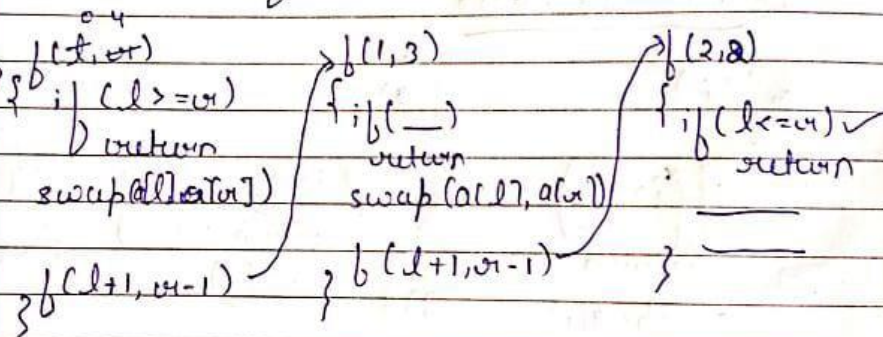 0 4
f(l, r)
{ if (l >= r)
return
swap(a[l], a[r])
f(l+1, r-1)
}
f(1,3)
{ if( __ )
return
swap(a[l], a[r])
f(l+1, r-1)
}
f(2,2)
{ if(l<=r) ✓
return
}